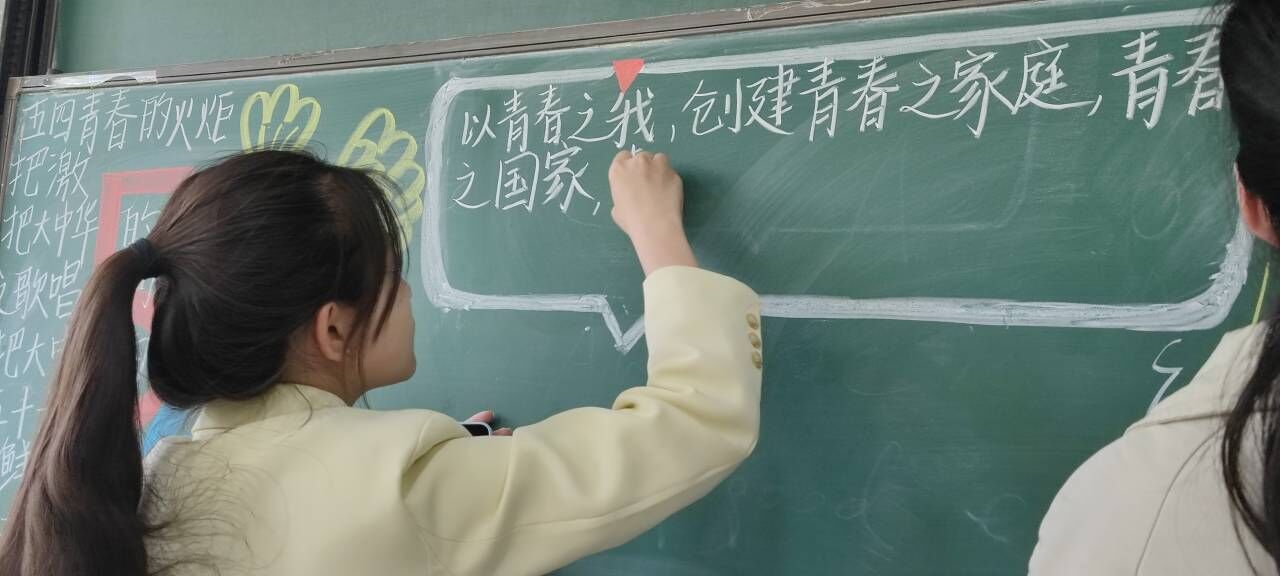 五四青春的火炬
把激
把大中华 的
歌唱
把大中
五十
鲜
以青春之我,创建青春之家庭,青春
之国家,